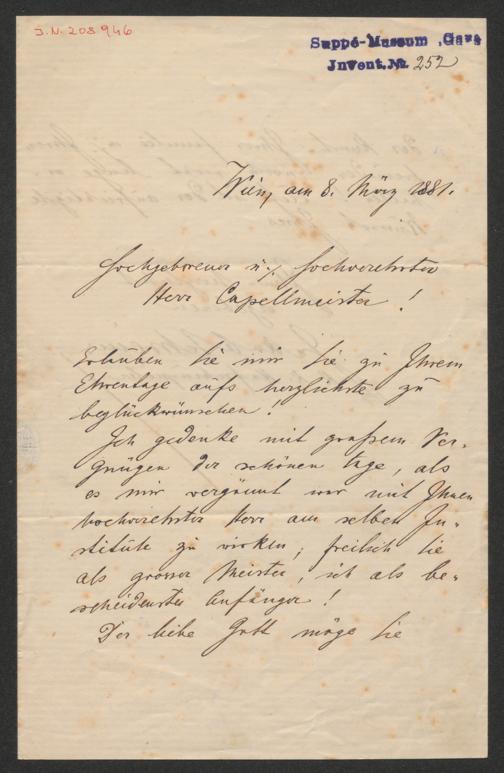 J.N. 208946
Suppé-Museum, Gars
Invent. Nr. 252
Wien, am 8. März 1881.
Hochgeborener u. hochverehrter
Herr Capellmeister!
Erlauben Sie mir Sie zu Ihrem
Ehrentage aufs herzlichste zu
beglückwünschen!
Ich gedenke mit großem Ver-
gnügen der schönen Tage, als
es mir vergönnt war mit Ihnen
hochverehrter Herr am selben In-
stitute zu wirken; freilich Sie
als grosser Meister, ich als be-
scheidenster Anfänger!
Der liebe Gott möge Sie